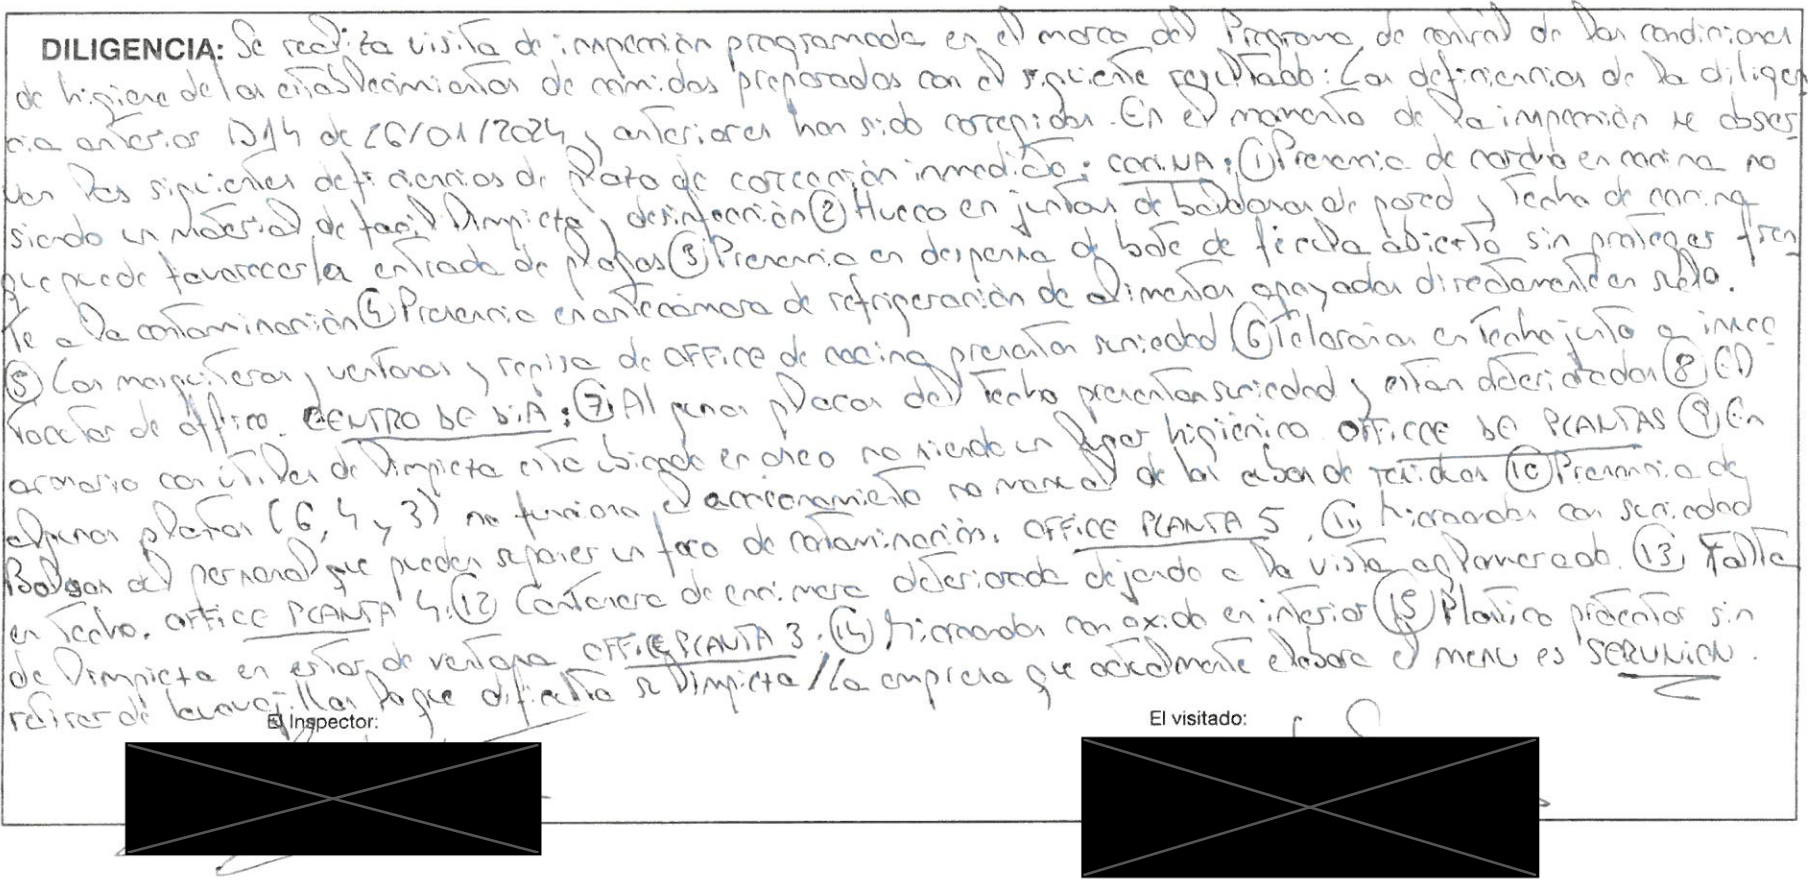 DILIGENCIA: Se realiza visita de inspección programada en el marco del Programa de control de las condiciones
de higiene de los establecimientos de comidas preparadas con el siguiente resultado: Las deficiencias de la diligen
cia anterior 1214 de 26/01/2024 y anteriores han sido corregidas. En el momento de la inspección se obser
van las siguientes deficiencias de plazo de corrección inmediato: COCINA: ① Presencia de cartón en cocina no
siendo un material de facil limpieza y desinfección ② Hueco en juntas de baldosas de pared y techo de cocina
que puede favorecer la entrada de plagas ③ Presencia en despensa de bote de fécula abierto sin proteger fren
te a la contaminación ④ Presencia en antecámara de refrigeración de alimentos apoyados directamente en suelo.
⑤ Las mosquiteras, ventanas y repisa de OFFICE de cocina presentan suciedad ⑥ Telarañas en techo junto a insec
tocutor de office. CENTRO DE DIA: ⑦ Algunas placas del techo presentan suciedad y están deterioradas ⑧ El
armario con útiles de limpieza está ubicado en aseo no siendo un lugar higiénico OFFICE DE PLANTAS ⑨ En
algunas plantas (6, 4 y 3) no funciona el accionamiento no manual de los cubos de residuos ⑩ Presencia de
Bolsas del personal que pueden suponer un foco de contaminación. OFFICE PLANTA 5. ⑪ Microondas con suciedad
en techo. OFFICE PLANTA 4. ⑫ Cantonera de encimera deteriorada dejando a la vista aglomerado. ⑬ Falta
de limpieza en estor de ventana OFFICE PLANTA 3. ⑭ Microondas con óxido en interior ⑮ Plástico protector sin
retirar de lavavajillas lo que dificulta su limpieza / La empresa que actualmente elabora el menu es SERUNION.
El Inspector:
El visitado: